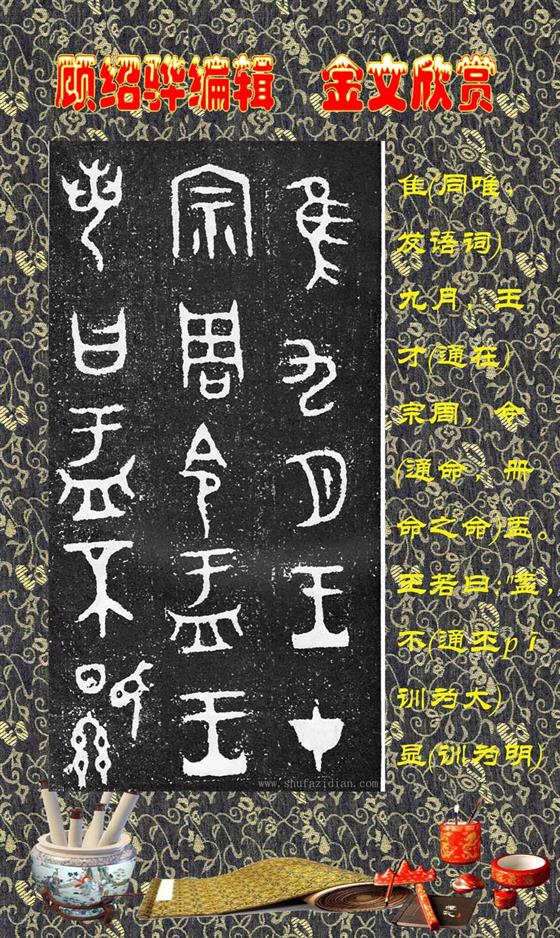 顾绍骅编辑 金文欣赏
隹九月王才
宗周令盂王
若曰盂不顯
隹(同唯,
发语词)
九月,王
才(通在)
宗周,令
(通命,册
命之命)盂。
王若曰:"盂,
不(通丕pī
训为大)
显(训为明)
www.shufazidian.com